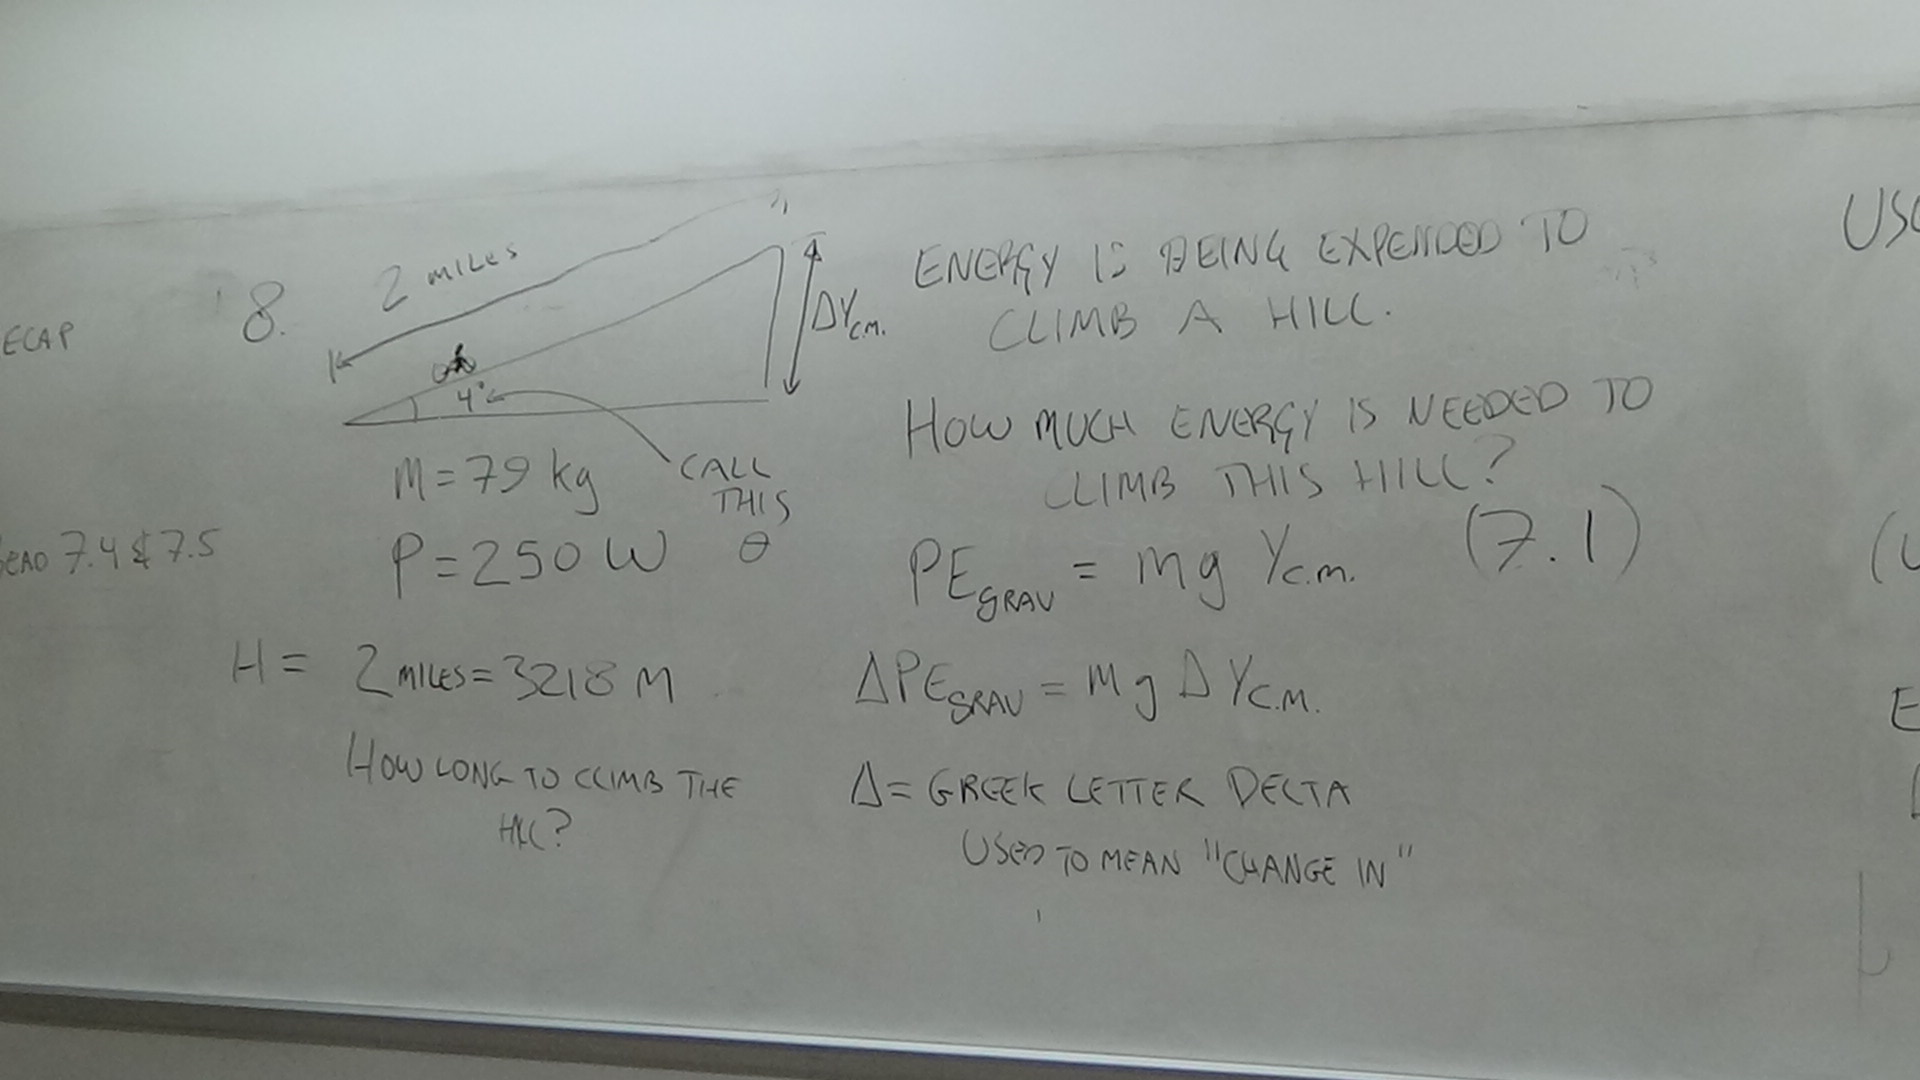 ECAP
READ 7.4 & 7.5
8.
2 MILES
ΔY C.M.
4°
M = 79 kg
CALL
THIS
θ
P = 250 W
H = 2 MILES = 3218 M
HOW LONG TO CLIMB THE
HILL?
ENERGY IS BEING EXPENDED TO
CLIMB A HILL.
HOW MUCH ENERGY IS NEEDED TO
CLIMB THIS HILL?
PE GRAV = mg Y C.M. (7.1)
ΔPE GRAV = mg ΔY C.M.
Δ = GREEK LETTER DELTA
USED TO MEAN "CHANGE IN"
US
(
E